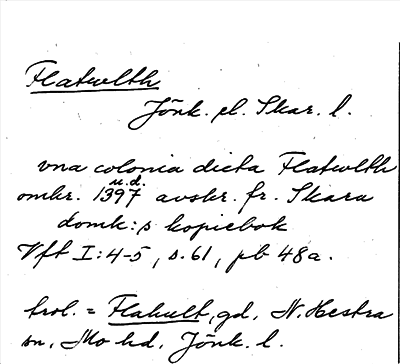 Flatwlth
Jönk. el. Skar. l.
vna colonia dicta Flatwlth
omkr. 1397 u.d. avskr. fr. Skara
domk:s kopiebok
Vft I:4-5, s.61, pb 48a.
trol. = Flahult, gd, N. Hestra
sn, Mo hd, Jönk. l.